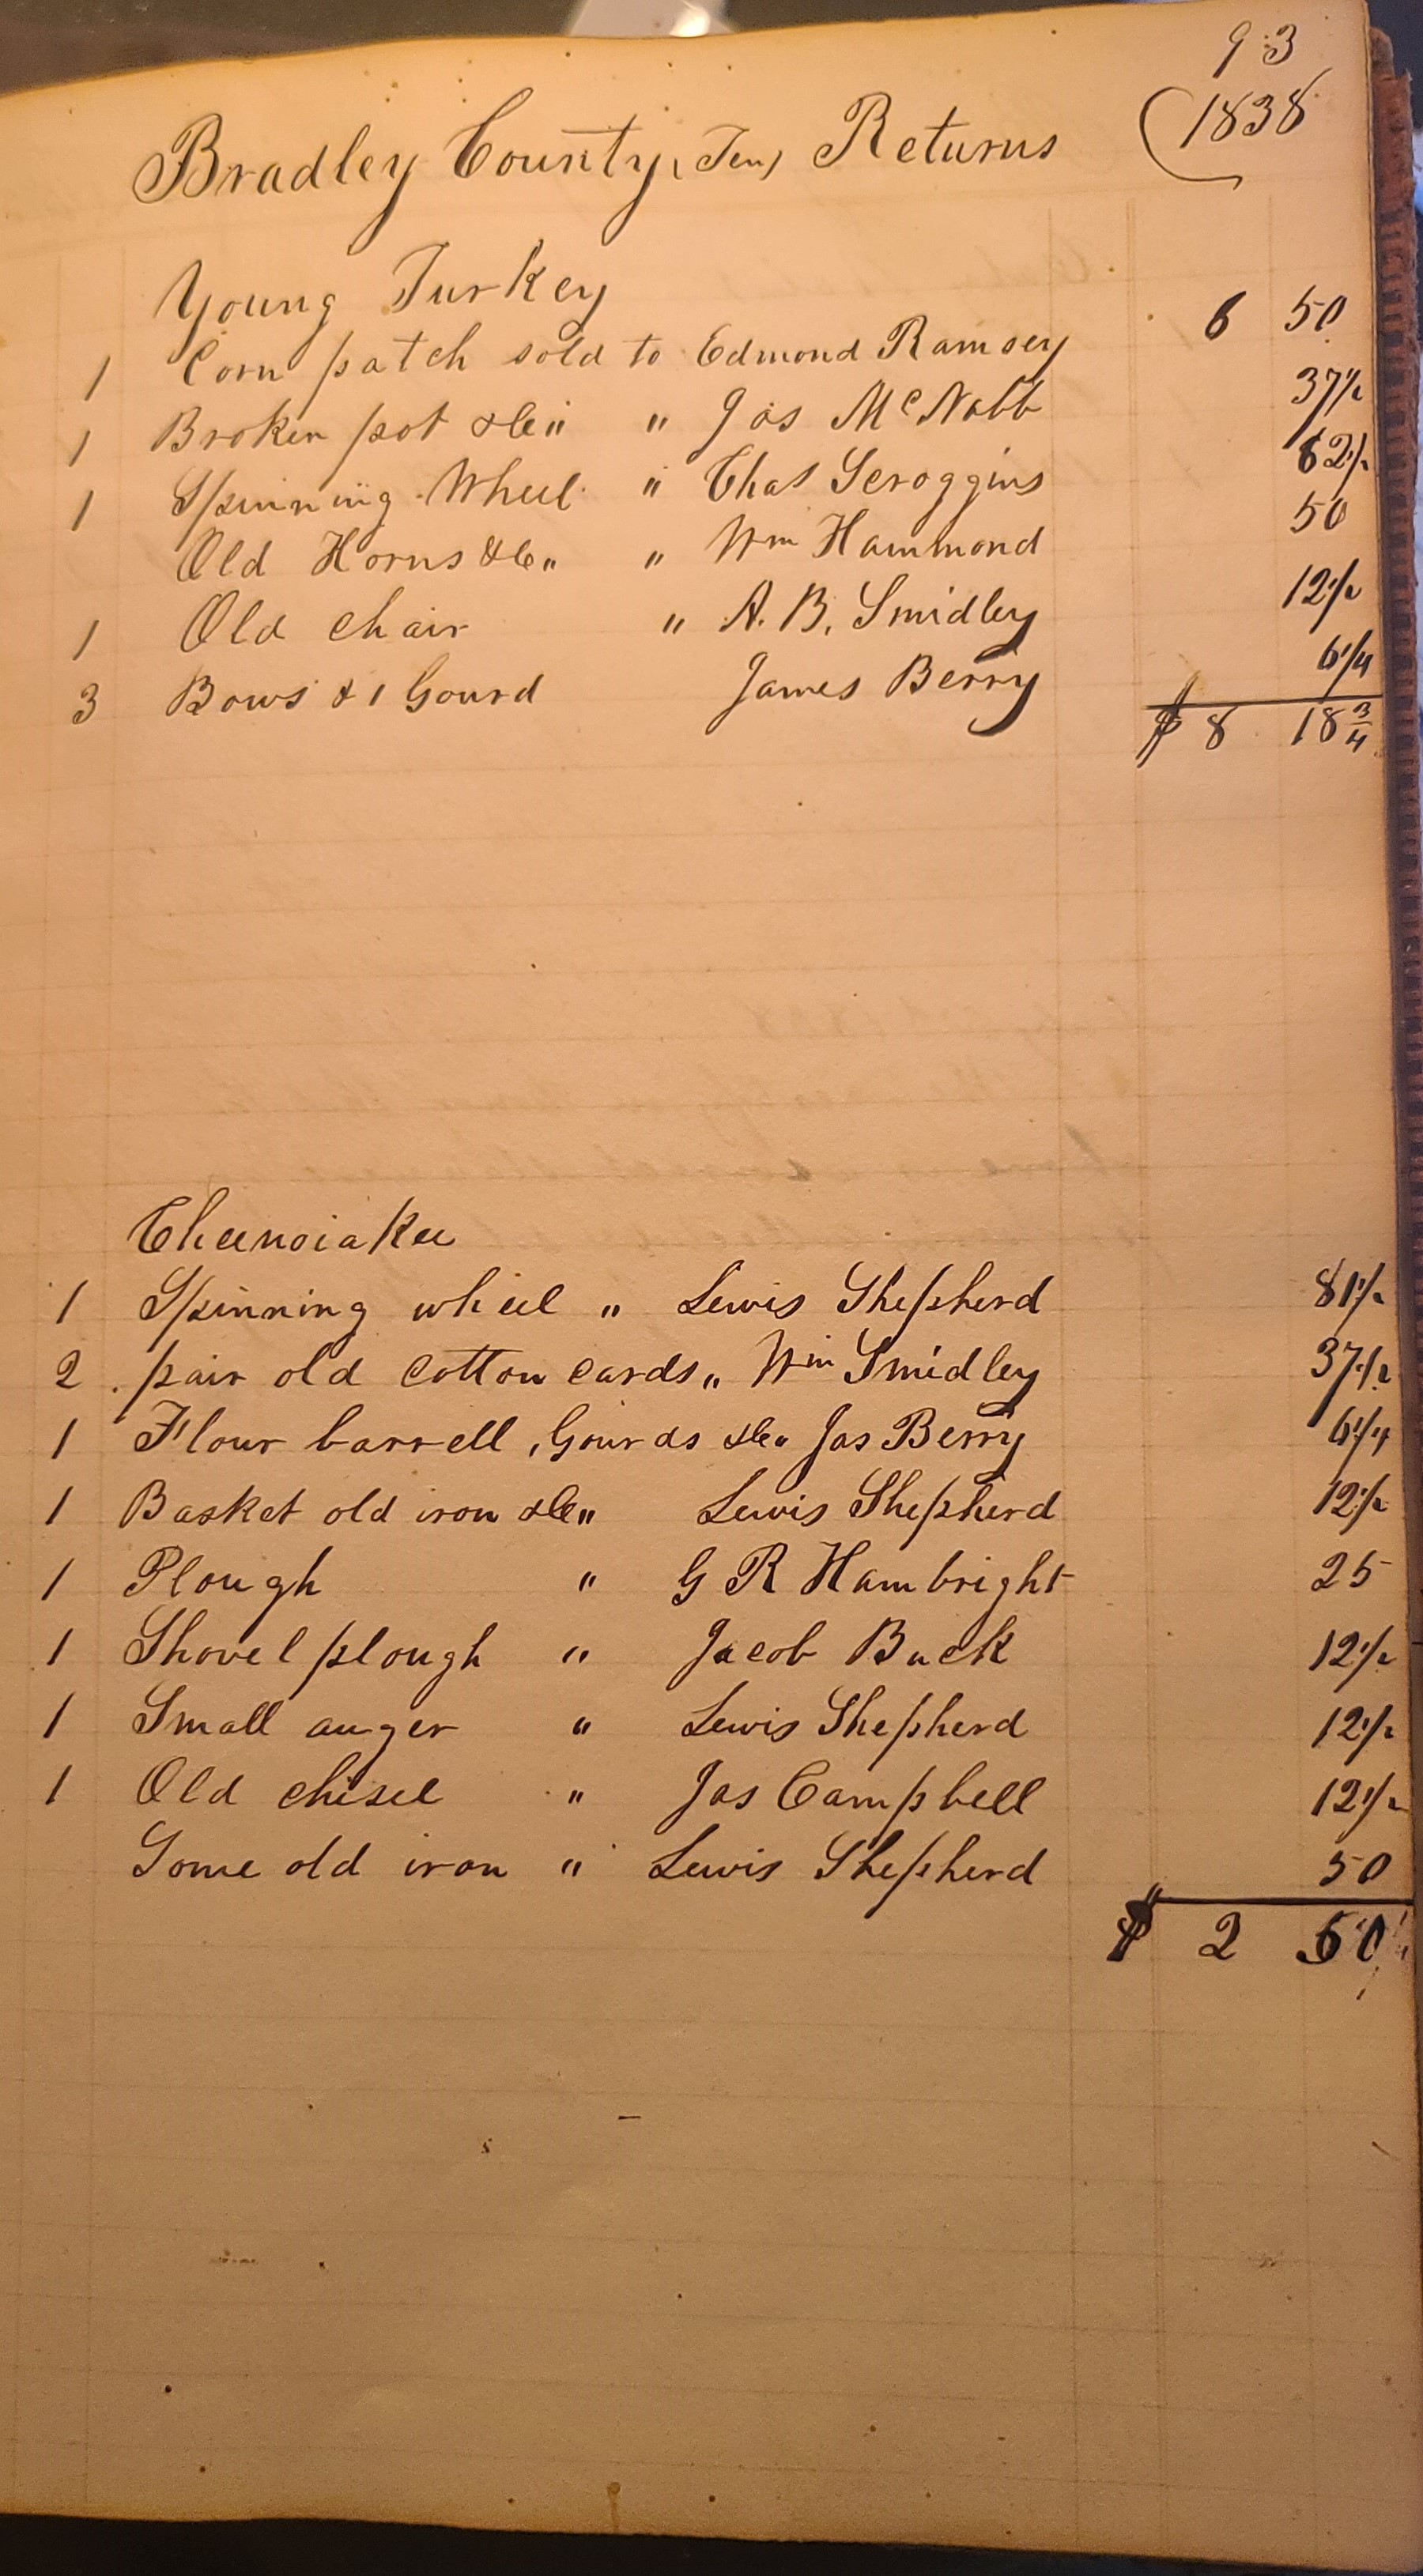 93
Bradley County, Ten, Returns (1838
Young Turkey
1 Corn patch sold to Edmond Ramsey 6 50
1 Broken pot &c " " Jas McNabb 37 1/2
1 Spinning Wheel " Chas Scroggins 62 1/2
Old Horns &c " " Wm Hammond 50
1 Old chair " A. B. Smidley 12 1/2
3 Bows & 1 Gourd James Berry 6 1/4
$ 8 18 3/4
Cheenoiakee
1 Spinning wheel " Lewis Shepherd 81 1/2
2 pair old cotton cards " Wm Smidley 37 1/2
1 Flour barrell, Gourds &c " Jas Berry 6 1/4
1 Basket old iron &c " Lewis Shepherd 12 1/2
1 Plough " G R Hambright 25
1 Shovel plough " Jacob Buck 12 1/2
1 Small auger " Lewis Shepherd 12 1/2
1 Old chisel " Jas Campbell 12 1/2
Some old iron " Lewis Shepherd 50
$ 2